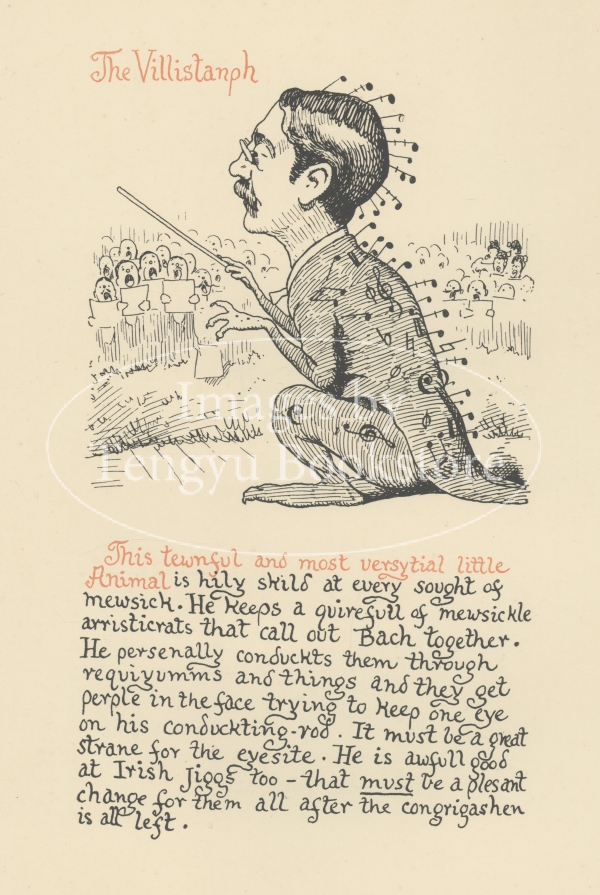 The Villistanph
Images by
Tengyu Bookstore
This tewnful and most versytial little
Animal is hily skild at every sought of
mewsick. He keeps a quirefull of mewsickle
arristicrats that call out Bach together.
He personally conduckts them through
requiyumms and things and they get
perple in the face trying to keep one eye
on his conduckting-rod. It must be a great
strane for the eyesite. He is awfull good
at Irish Jiggs too – that must be a plesant
change for them all after the congrigashen
is all left.